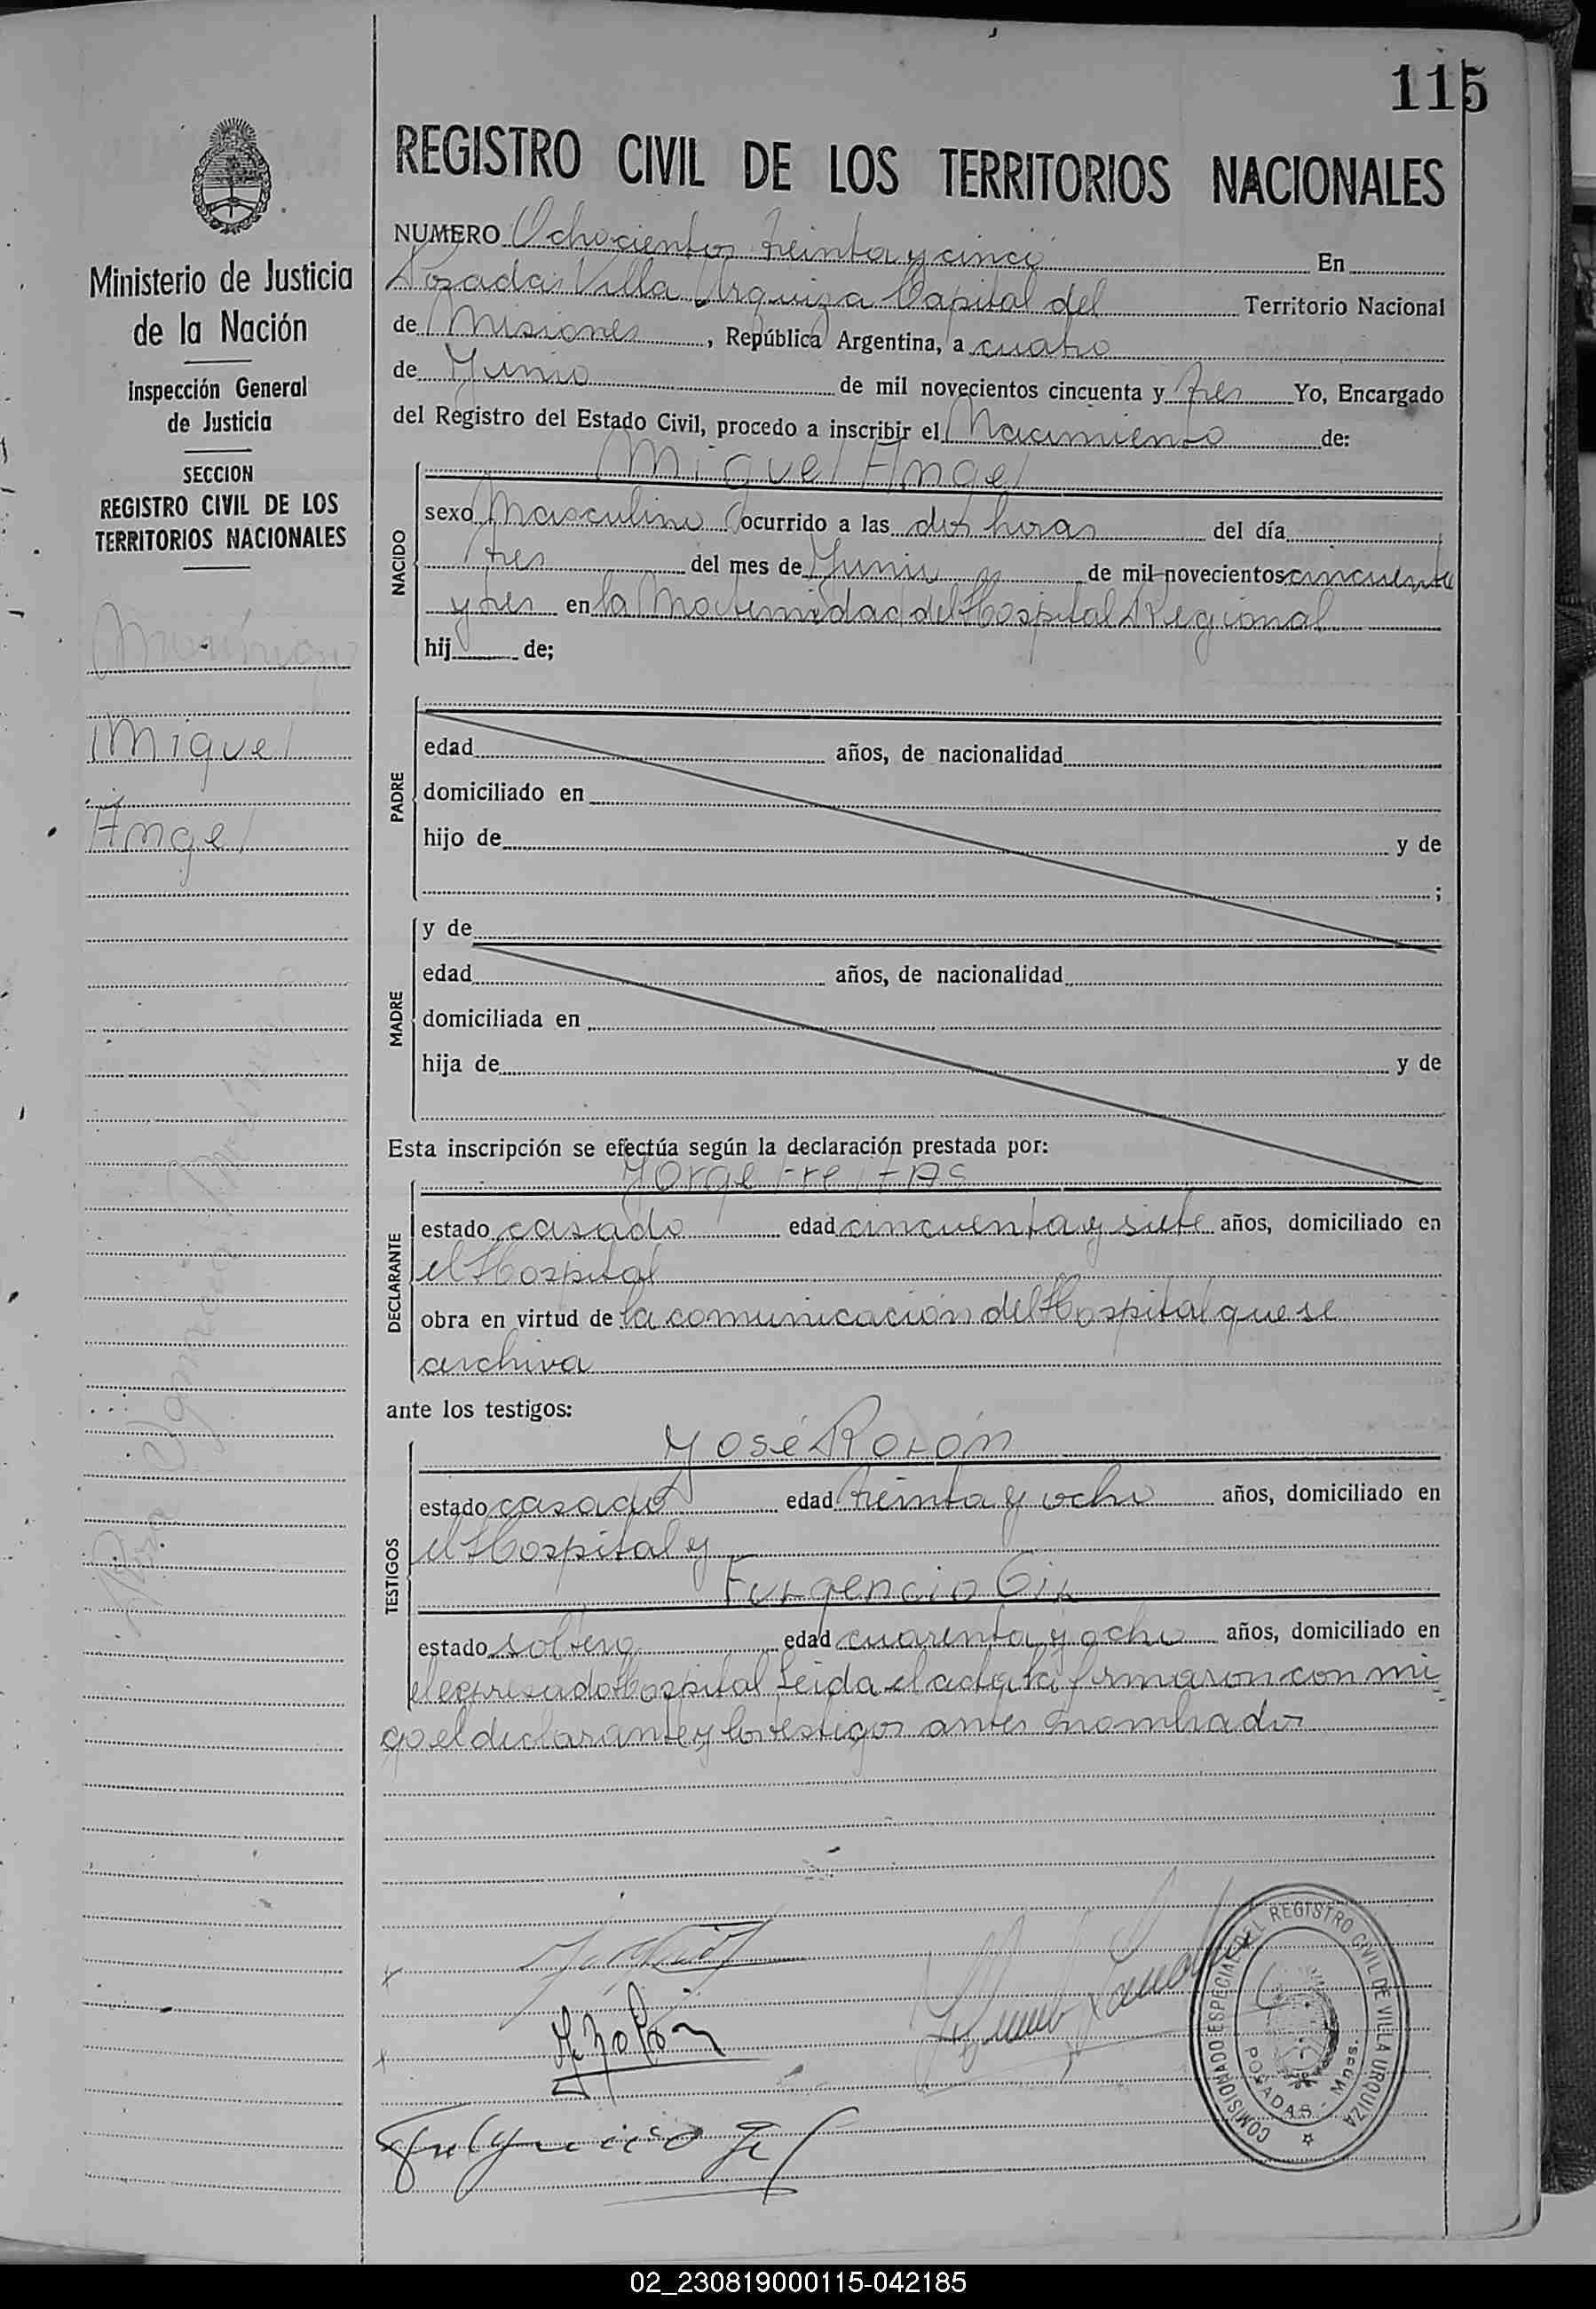 115
REGISTRO CIVIL DE LOS TERRITORIOS NACIONALES
Ministerio de Justicia
de la Nación
Inspección General
de Justicia
SECCION
REGISTRO CIVIL DE LOS
TERRITORIOS NACIONALES
Miguel
Angel
NUMERO Ochocientos treinta y cinco En
Posadas Villa Urquiza Capital del Territorio Nacional
de Misiones, República Argentina, a cuatro
de Junio de mil novecientos cincuenta y tres Yo, Encargado
del Registro del Estado Civil, procedo a inscribir el Nacimiento de:
Miguel Angel
NACIDO
sexo Masculino ocurrido a las dos horas del día
tres del mes de Junio de mil novecientos cincuenta
y tres en la Maternidad del Hospital Regional
hij de;
PADRE
edad años, de nacionalidad
domiciliado en
hijo de y de
;
MADRE
y de
edad años, de nacionalidad
domiciliada en
hija de y de
Esta inscripción se efectúa según la declaración prestada por:
Jorge Freitas
DECLARANTE
estado casado edad cincuenta y siete años, domiciliado en
el Hospital
obra en virtud de la comunicación del Hospital que se
archiva
ante los testigos:
José Rolón
TESTIGOS
estado casado edad treinta y ocho años, domiciliado en
el Hospital y
Fulgencio Gil
estado soltero edad cuarenta y ocho años, domiciliado en
el expresado Hospital Leida el acta la firmaron con mi
go el declarante y los testigos antes nombrados
J. Rolón
Fulgencio Gil
COMISIONADO ESPECIAL DEL REGISTRO CIVIL DE VILLA URQUIZA
POSADAS - Mnes.
02_230819000115-042185